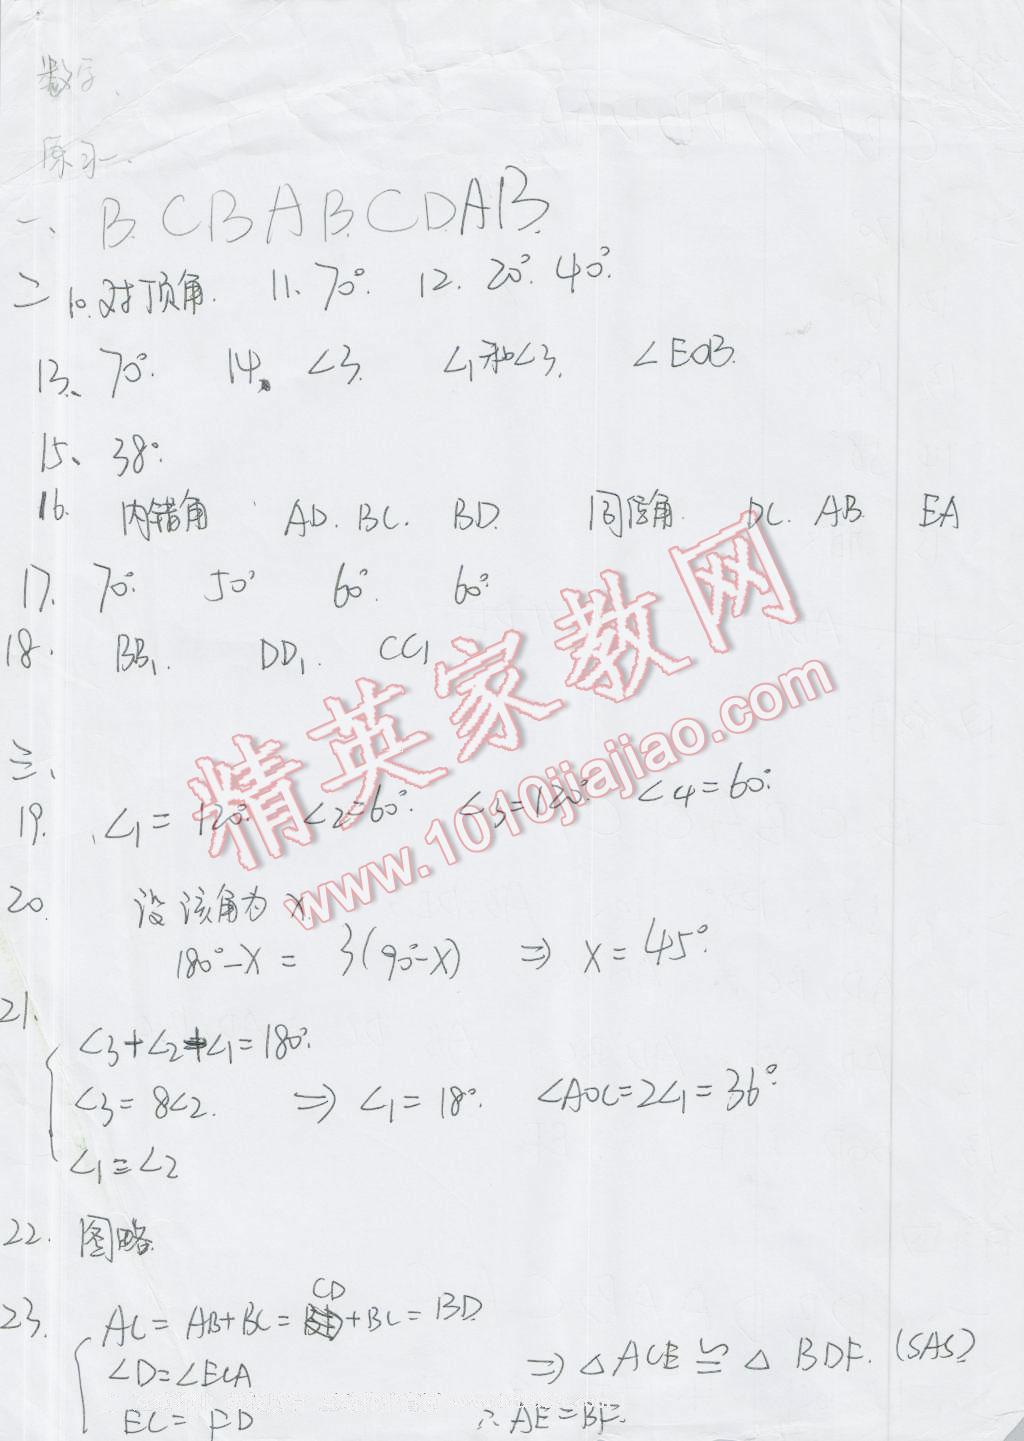 数学.
练习一、
一、B. C B A B. C D A B.
二 10. 对顶角. 11. 70°. 12. 20°. 40°.
13、70°. 14. ∠3. ∠1和∠3. ∠EOB.
15、38°.
16. 内错角 AD. BC. BD. 同位角. DC. AB. EA
17. 70°. 50° 60°. 60°.
18. BB₁. DD₁. CC₁
三、
19. ∠1 = 120°. ∠2=60°. ∠3=120°. ∠4=60°.
20. 设该角为X.
180°-X = 3(90°-X) ⇒ X=45°.
21.
∠3+∠2+∠1=180°.
∠3=8∠2. ⇒ ∠1=18°. ∠AOC=2∠1=36°
∠1=∠2
22. 图略.
23. AC=AB+BC=CD+BC=BD
∠D=∠ECA ⇒ △ACE≌△BDF. (SAS)
EC=FD ∴AE=BF.
精英家教网
www.1010jiajiao.com